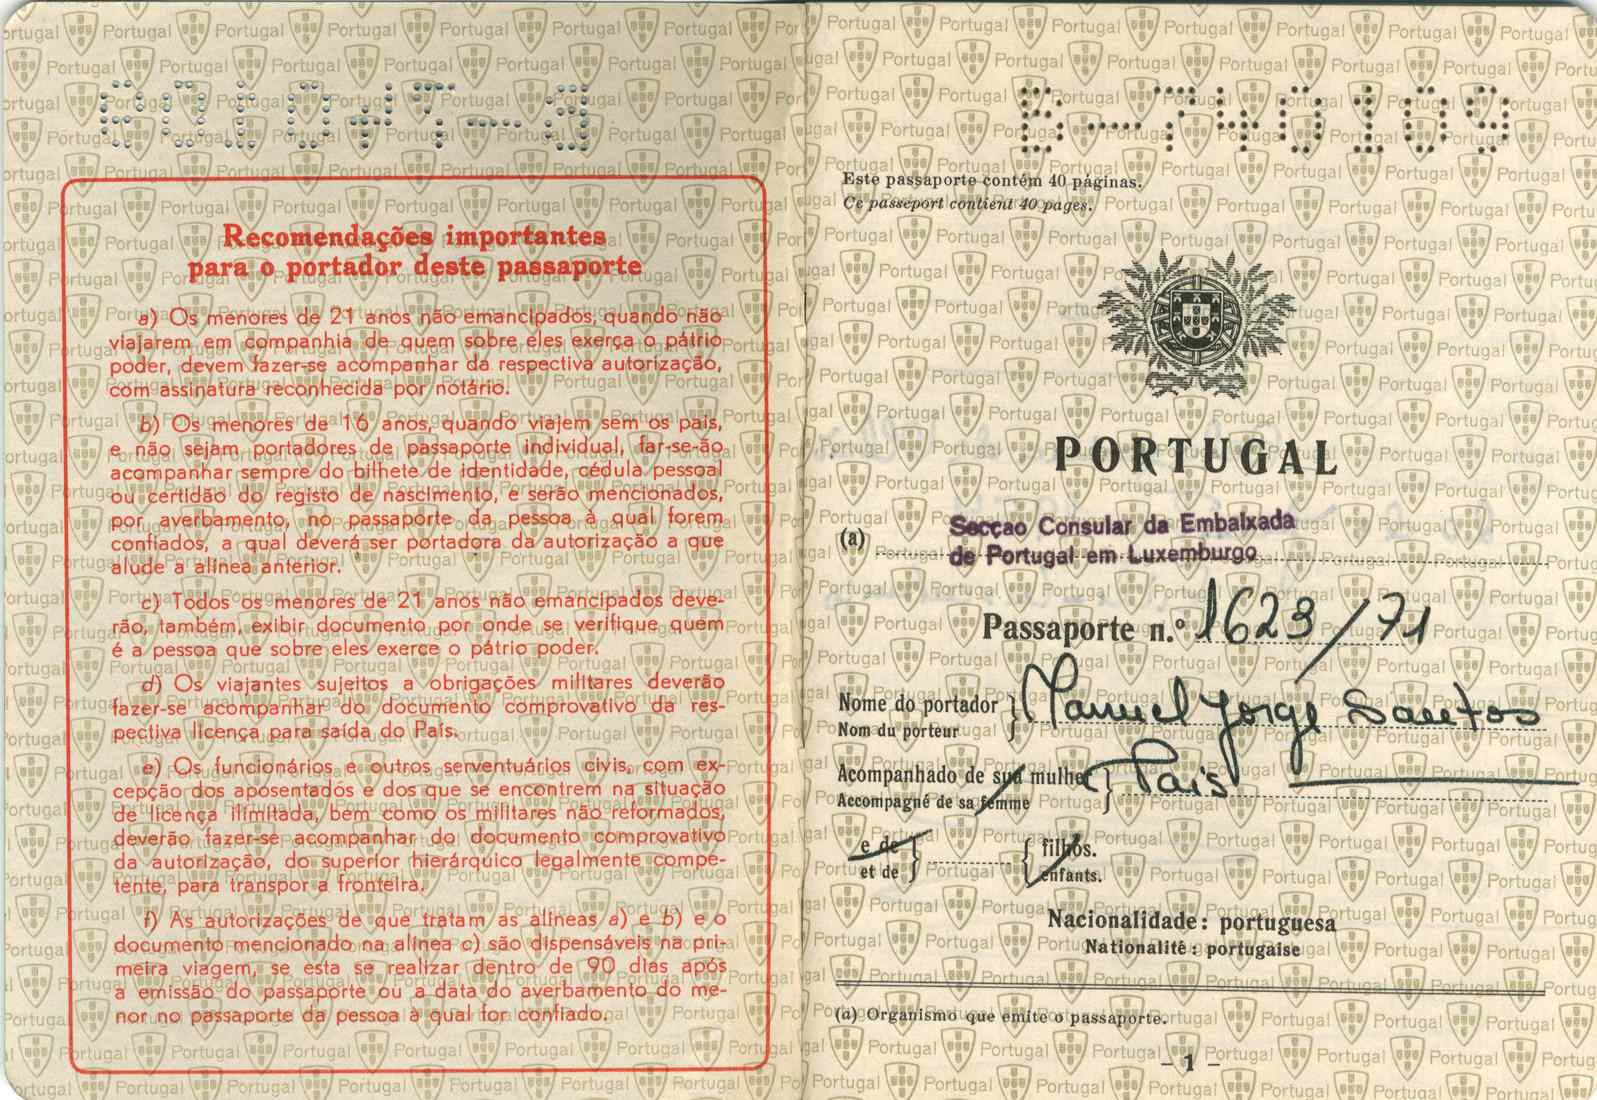 B-740109
Recomendações importantes
para o portador deste passaporte
a) Os menores de 21 anos não emancipados, quando não
viajarem em companhia de quem sobre eles exerça o pátrio
poder, devem fazer-se acompanhar da respectiva autorização,
com assinatura reconhecida por notário.
b) Os menores de 16 anos, quando viajem sem os pais,
e não sejam portadores de passaporte individual, far-se-ão
acompanhar sempre do bilhete de identidade, cédula pessoal
ou certidão do registo de nascimento, e serão mencionados,
por averbamento, no passaporte da pessoa à qual forem
confiados, a qual deverá ser portadora da autorização a que
alude a alínea anterior.
c) Todos os menores de 21 anos não emancipados deve-
rão, também, exibir documento por onde se verifique quem
é a pessoa que sobre eles exerce o pátrio poder.
d) Os viajantes sujeitos a obrigações militares deverão
fazer-se acompanhar do documento comprovativo da res-
pectiva licença para saída do País.
e) Os funcionários e outros serventuários civis, com ex-
cepção dos aposentados e dos que se encontrem na situação
de licença ilimitada, bem como os militares não reformados,
deverão fazer-se acompanhar do documento comprovativo
da autorização, do superior hierárquico legalmente compe-
tente, para transpor a fronteira.
f) As autorizações de que tratam as alíneas a) e b) e o
documento mencionado na alínea c) são dispensáveis na pri-
meira viagem, se esta se realizar dentro de 90 dias após
a emissão do passaporte ou a data do averbamento do me-
nor no passaporte da pessoa à qual for confiado.
B-740109
Este passaporte contém 40 páginas.
Ce passeport contient 40 pages.
PORTUGAL
(a) Secçao Consular da Embaixada
de Portugal em Luxemburgo
Passaporte n.º 1623/71
Nome do portador Manuel Jorge Santos
Nom du porteur
Acompanhado de sua mulher Pais
Accompagné de sa femme
e de filhos.
et de enfants.
Nacionalidade: portuguesa
Nationalité: portugaise
(a) Organismo que emite o passaporte.
- 1 -